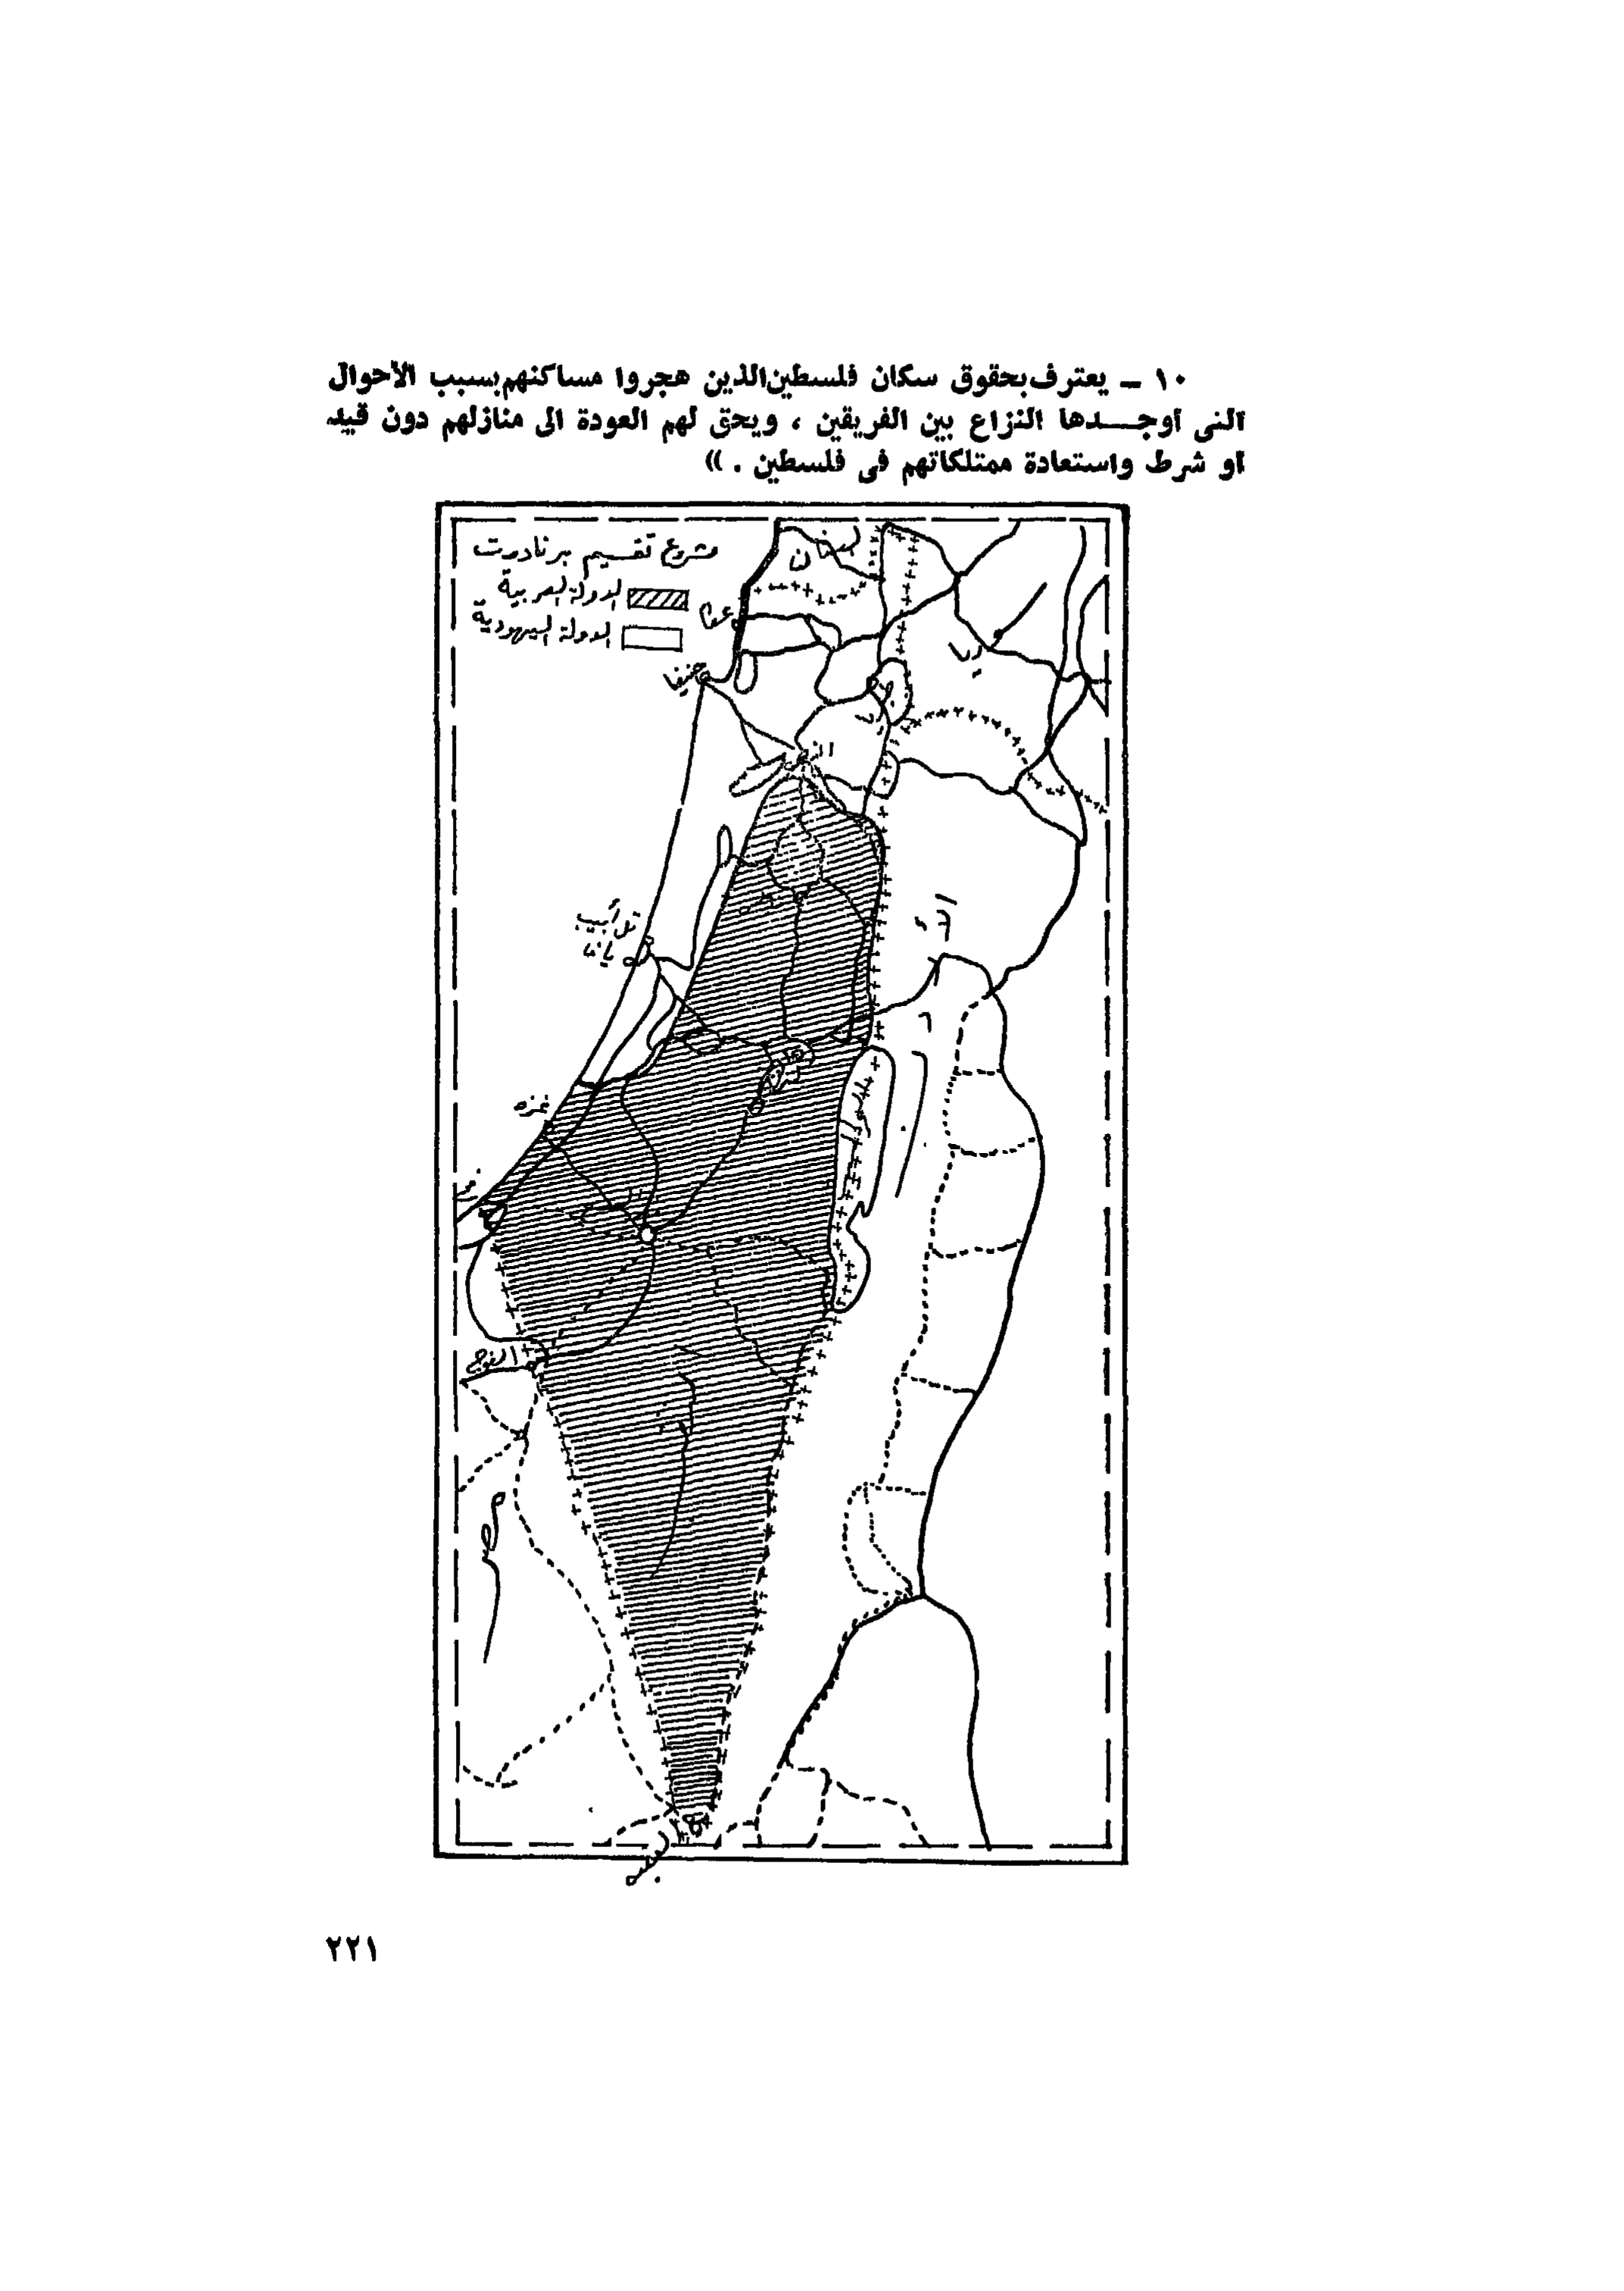 ١٠ ــ يعترف بحقوق سكان فلسطين الذين هجروا مساكنهم بسبب الأحوال
التى أوجــدها النزاع بين الفريقين ، ويحق لهم العودة الى منازلهم دون قيد
أو شرط واستعادة ممتلكاتهم فى فلسطين . »
مشروع تقسيم برنادوت
الدولة العربية
الدولة اليهودية
لبنان
عكا
حيفا
تل أبيب
يافا
غزه
العوجه
مصر
٢٢١